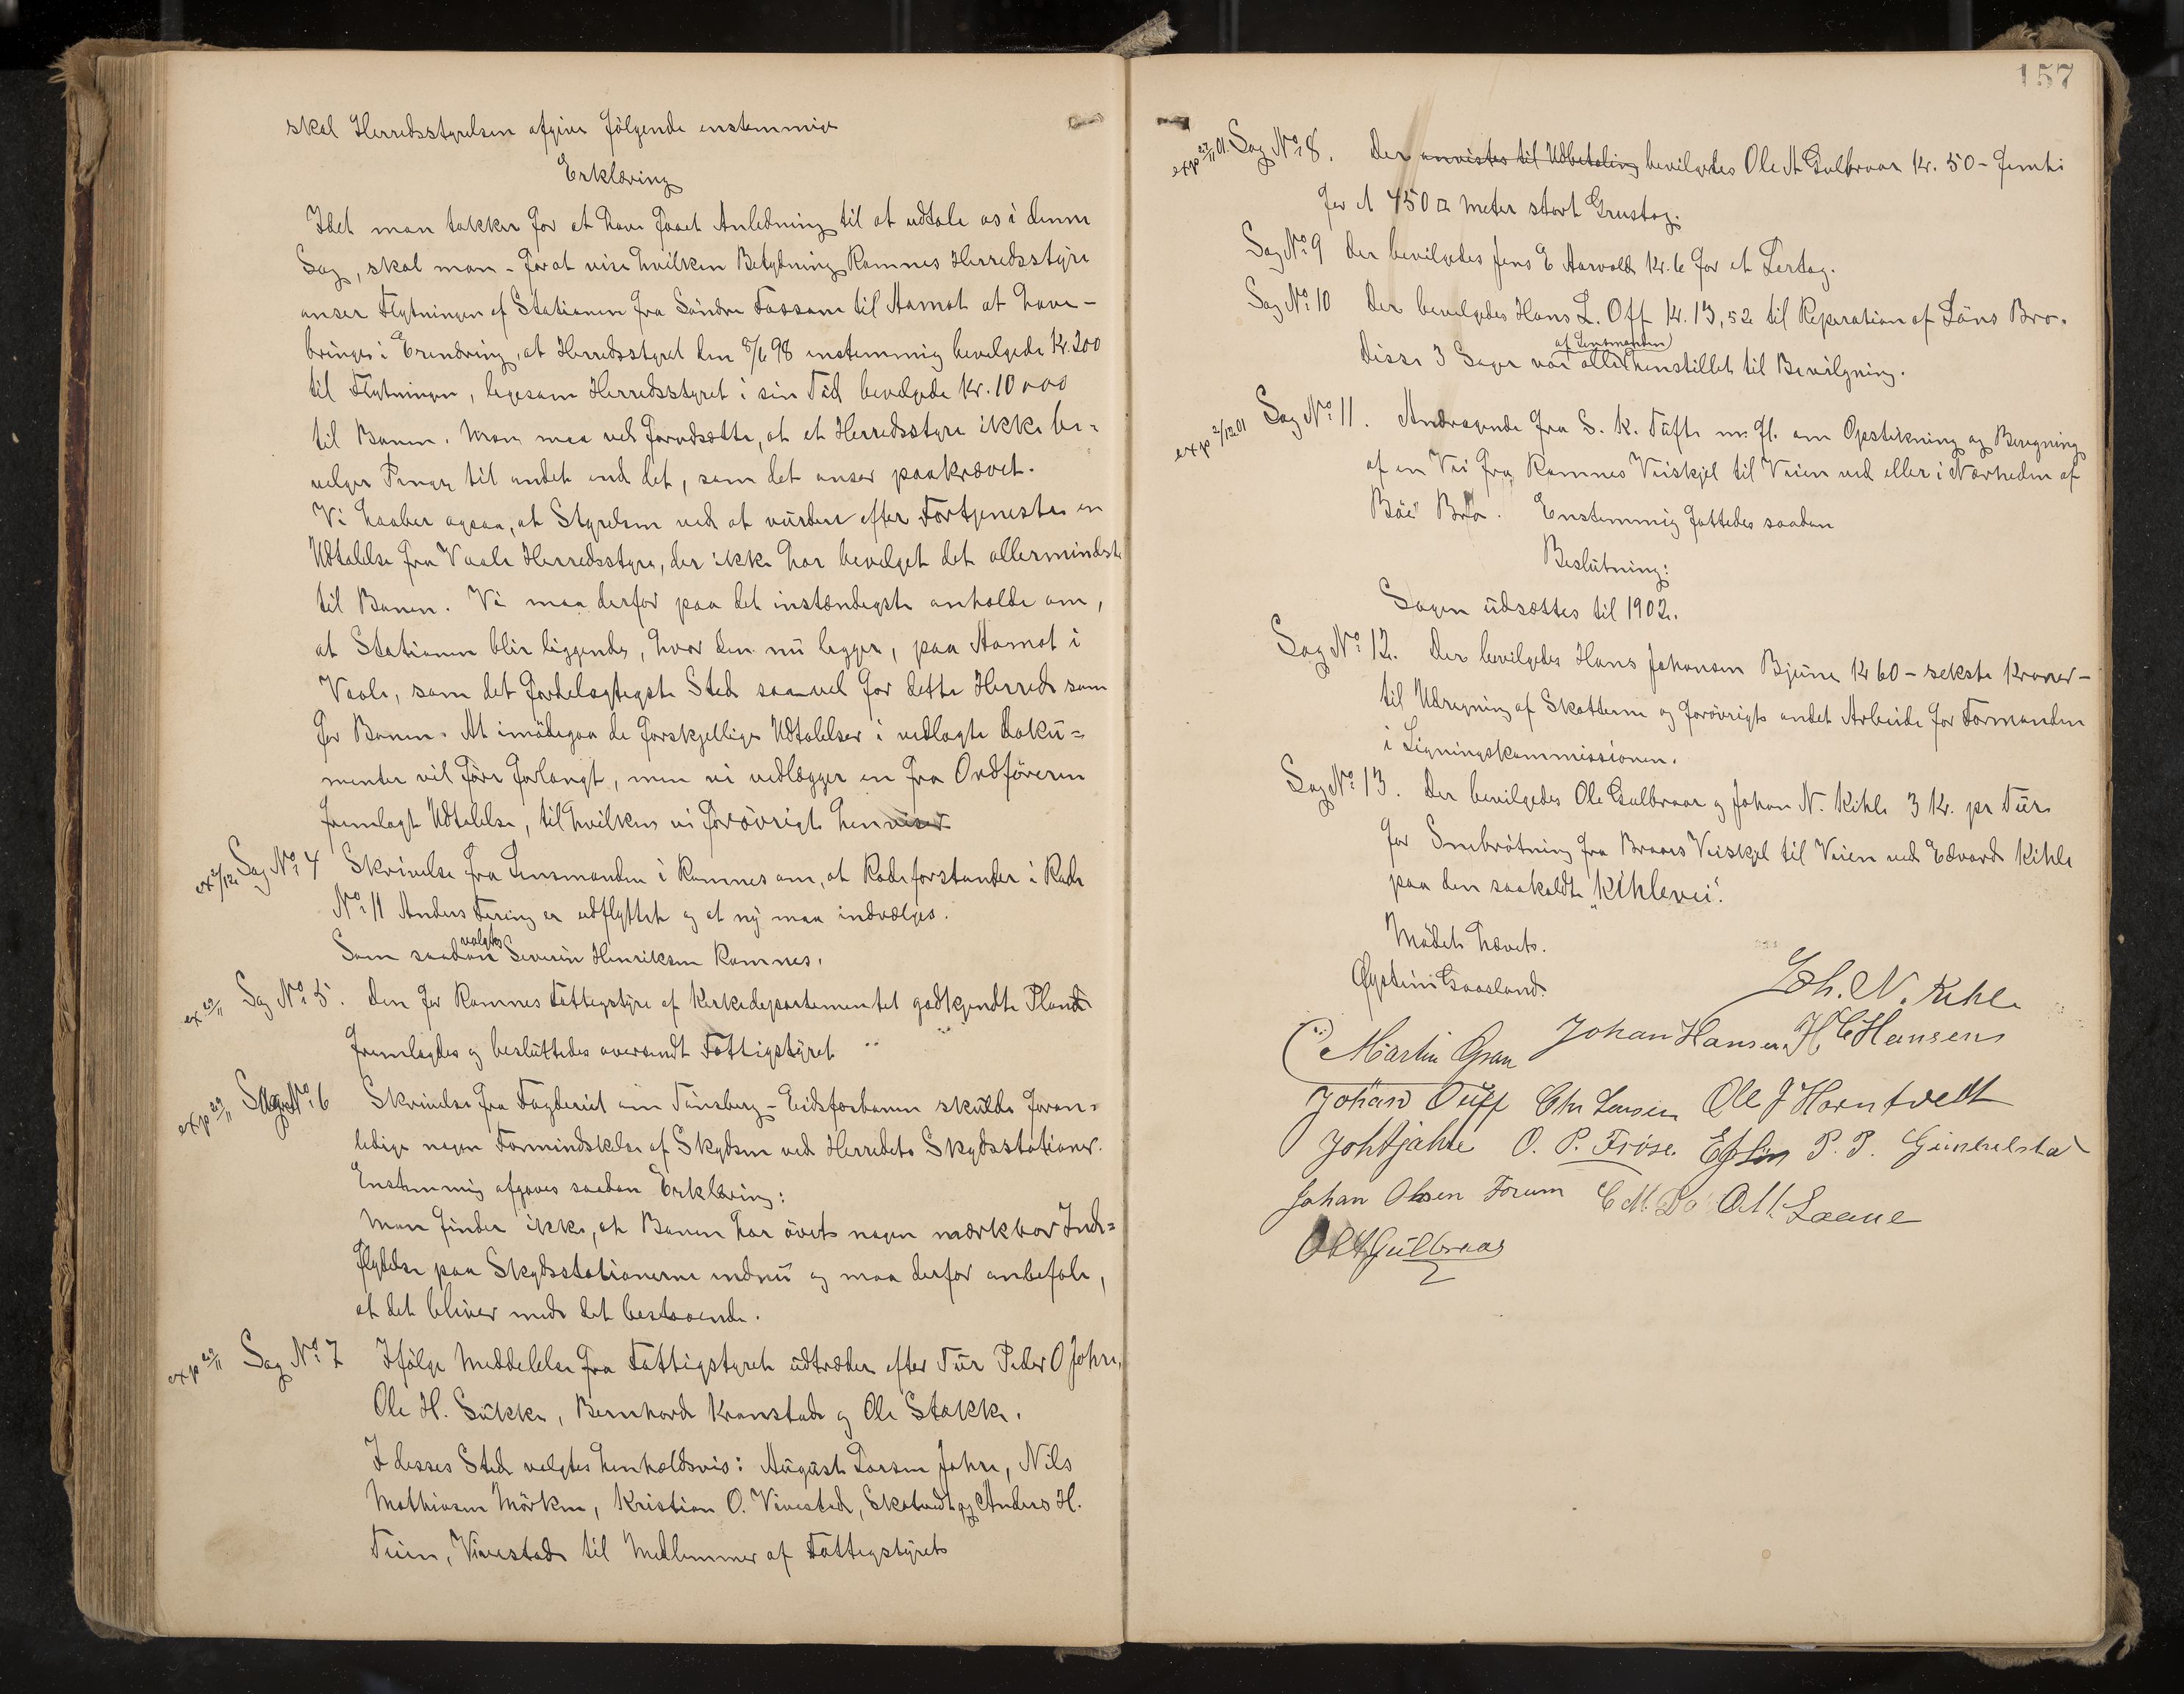 skal Herredsstyrelsen afgive følgende enstemmige
Erklæring
Idet man takker for at have faaet Anledning til at udtale os i denne
Sag, skal man - for at vise hvilken Betydning Ramnes Herredsstyre
anser Flytningen af Stationen fra Søndre Fossan til Aamot at have -
bringe i Erindring, at Herredsstyret den 8/6 98 enstemmig bevilgede Kr. 200
til Flytningen, ligesom Herredsstyret i sin Tid bevilgede Kr. 10000
til Banen. Man maa vel forudsætte, at et Herredsstyre ikke be=
vilger Penge til andet end det, som det anser paakrævet.
Vi haaber ogsaa, at Styrelsen ved at vurdere efter Fortjeneste en
Udtalelse fra Vaale Herredsstyre, der ikke har bevilget det allermindste
til Banen. Vi maa derfor paa det instændigste anholde om,
at Stationen blir liggende, hvor den nu ligger, paa Aamot i
Vaale, som det fordelagtigste Sted saavel for dette Herred som
for Banen. At imødegaa de forskjellige Udtalelser i vedlagte Doku=
menter vil føre forlangt, men vi vedlægger en fra Ordføreren
fremlagt Udtalelse, til hvilken vi forøvrigt henviser
ex 2/12 Sag No 4 Skrivelse fra Lensmanden i Ramnes om, at Rodeforstander i Rode
No 11 Anders Fering er udflyttet og at ny maa indvælges.
Som saadan valgtes Severin Henriksen Ramnes.
ex 29/11 Sag No 5. Den for Ramnes Fattigstyre af Kirkedepartementet godkjendte Plan
fremlagdes og besluttedes oversendt Fattigstyret
exp 29/11 Sag No 6 Skrivelse fra Fogderiet om Tønsberg - Eidsfosbanen skulde foran=
ledige nogen Formindskelse af Skydsen ved Herredets Skydsstationer.
Enstemmig afgaves saadan Erklæring:
Man finder ikke, at Banen har øvet nogen mærkbar Ind=
flydelse paa Skydsstationerne endnu og maa derfor anbefale,
at det bliver med det bestaaende.
exp 29/11 Sag No 7 Ifølge Meddelelse fra Fattigstyret udtræder efter Tur Peder O Jahre,
Ole H. Sukke, Bernhard Kronstad og Ole Stokke.
I disses Sted valgtes henholdsvis: August Larsen Jahre, Nils
Mathiasen Mörken, Kristian O. Vivestad, Skatvedt og Anders H.
Teien, Vivestad til Medlemmer af Fattigstyret
157
exp 29/11 01. Sag No 8. Der anvistes til Udbetaling bevilgedes Ole A Gulbraar Kr. 50 - femti
for et 450 □ Meter stort Grustag.
Sag No 9 Der bevilgedes Jens E Aarvold Kr. 6 for et Lertag.
Sag No 10 Der bevilgedes Hans L. Off Kr. 13,52 til Reparation af Låns Bro.
af Lensmanden
Disse 3 Sager var alle henstillet til Bevilgning.
exp 2/12 01 Sag No 11. Andragende fra S. K. Tufte m. fl. om Opstikning og Beregning
af en Vei fra Ramnes Veiskjel til Veien ved eller i Nærheden af
Böe Bro. Enstemmig fattedes saadan
Beslutning:
Sagen udsættes til 1902.
Sag No 12. Der bevilgedes Hans Johansen Bjune Kr 60 - sekste Kroner -
til Udregning af Skatterne og forøvrigt andet Arbeide for Formanden
i Ligningskommissionen.
Sag No 13. Der bevilgedes Ole Gulbraar og Johan N. Kihle 3 Kr. pr Tur
for Snebrøtning fra Braars Veiskjel til Veien ved Edvard Kihle
paa den saakaldte "Kihlevei".
Mødet hævet.
Øystein Gaasland. Joh. N. Kihle
Martin Gran Johan Hansen H C Hansen
Johan Ouff Chr Larsen Ole J Horntvedt
Joh Hjahre O. P. Fröse P. P. Gunhelsta
Johan Olsen Forum C M. O. M. Laane
Ole A Gulbraar